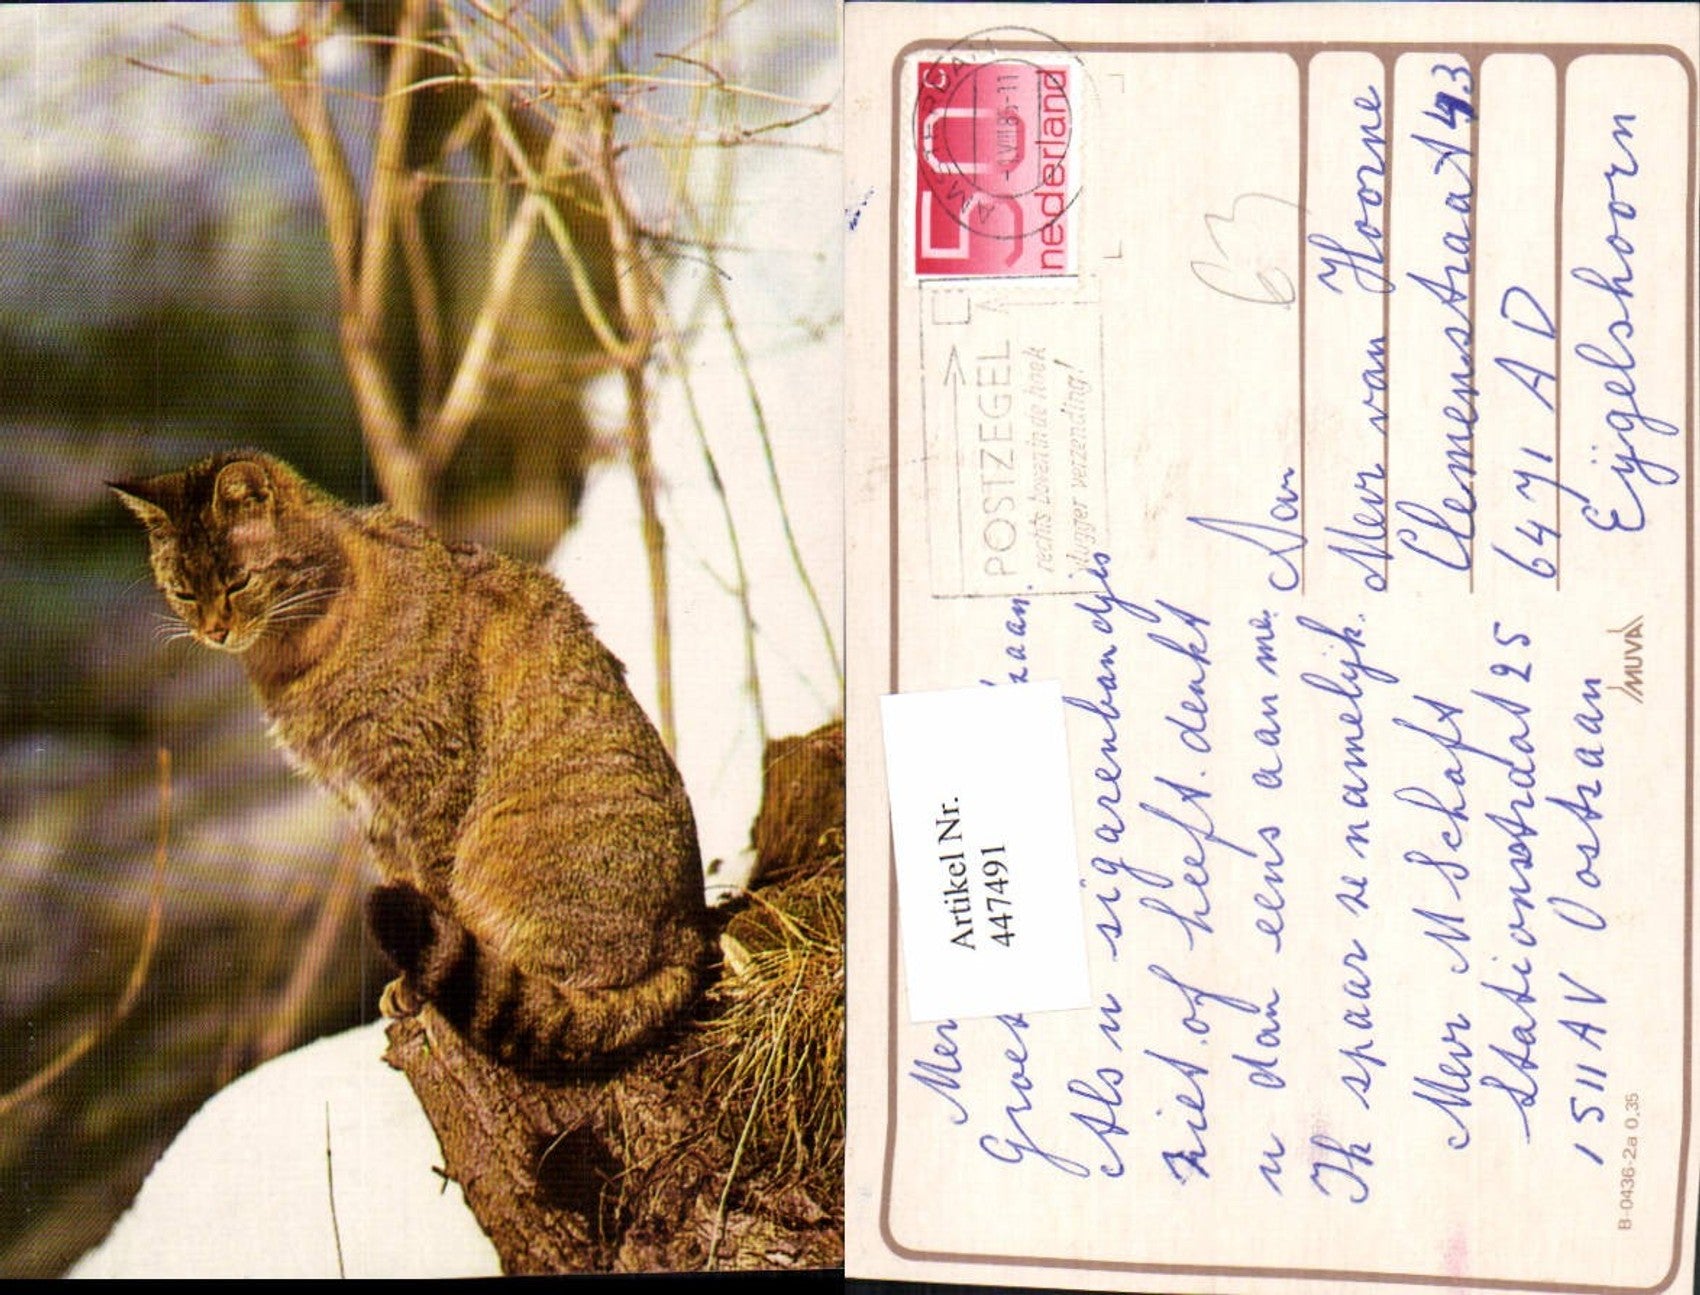 AMSTERDAM
-1.VIII.86-11
nederland
POSTZEGEL
rechts boven in de hoek
vlugger verzending!
63
Artikel Nr.
447491
Groet
Als u sigarenbandjes
ziet of heeft. denkt
u dan eens aan me.
Ik spaar ze namelijk.
Mevr M Schaft
Stationsstraat 25
1511 AV Oostzaan
Aan
Mevr van Hoorne
Clemensstraat 43
6471 AD
Eijgelshoorn
MUVA
B-0436-2a 0,35